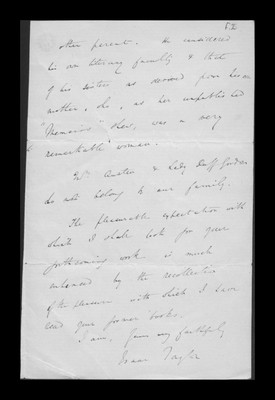 52
other parent. He considered
his own literary faculty & that
of his sisters as derived from her
mother, she, as her unpublished
"Memories" shew, was a very
remarkable woman.
Mrs Austin & Lady Duff Gordon
do not belong to our family.
The pleasurable expectation with
which I shall look for your
forthcoming work is much
enhanced by the recollection
of the pleasure with which I have
read your former books.
I am, Yours very faithfully
Isaac Taylor